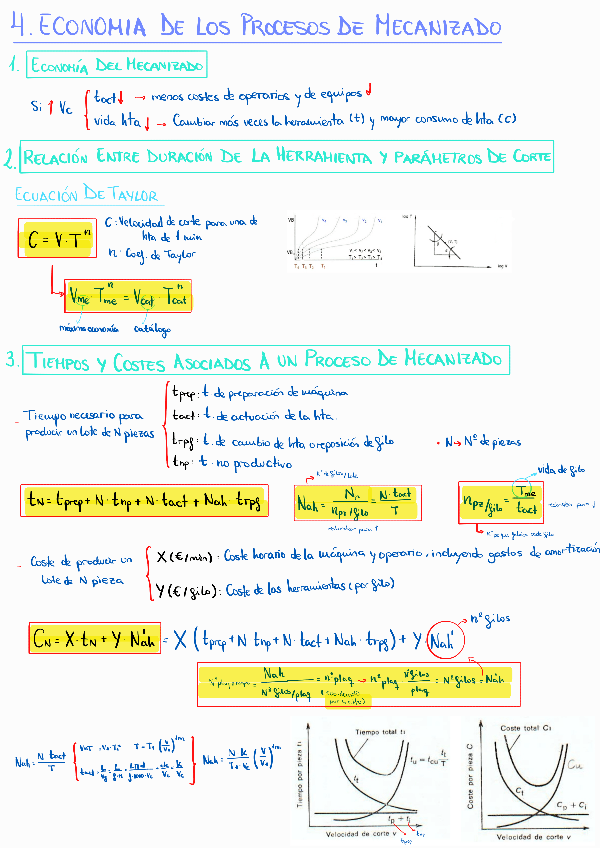 4. ECONOMIA DE LOS PROCESOS DE MECANIZADO
1. ECONOMÍA DEL MECANIZADO
Si ↑ Vc
tact ↓ → menos costes de operarios y de equipos ↓
vida hta ↓ → Cambiar más veces la herramienta (t) y mayor consumo de hta (c)
2. RELACIÓN ENTRE DURACIÓN DE LA HERRAMIENTA Y PARÁMETROS DE CORTE
ECUACIÓN DE TAYLOR
C = V · T^n
C: Velocidad de corte para una de
hta de 1 min
n: Coef. de Taylor
Vme · Tme^n = Vcat · Tcat^n
máxima economía
catálogo
3. TIEMPOS Y COSTES ASOCIADOS A UN PROCESO DE MECANIZADO
- Tiempo necesario para
producir un lote de N piezas
tprep: t. de preparación de máquina
tact: t. de actuación de la hta.
trpf: t. de cambio de hta o reposición de filo
tnp: t. no productivo
• N → Nº de piezas
tN = tprep + N · tnp + N · tact + Nah · trpf
Nah = N / npz/filo = N · tact / T
npz/filo = Tme / tact
vida de filo
- Coste de producir un
lote de N pieza
X (€/min): Coste horario de la máquina y operario, incluyendo gastos de amortización
Y (€/filo): Coste de las herramientas (por filo)
CN = X · tN + Y · Nah' = X (tprep + N tnp + N · tact + Nah · trpf) + Y Nah'
nº filos
Nah / Nº filos/plaq = nº plaq → nº plaq · nº filos / plaq = Nº filos = Nah
Nah = N tact / T
Tiempo total t1
Tiempo por pieza t1
Velocidad de corte v
Coste total C1
Cu
Coste por pieza C
Velocidad de corte v